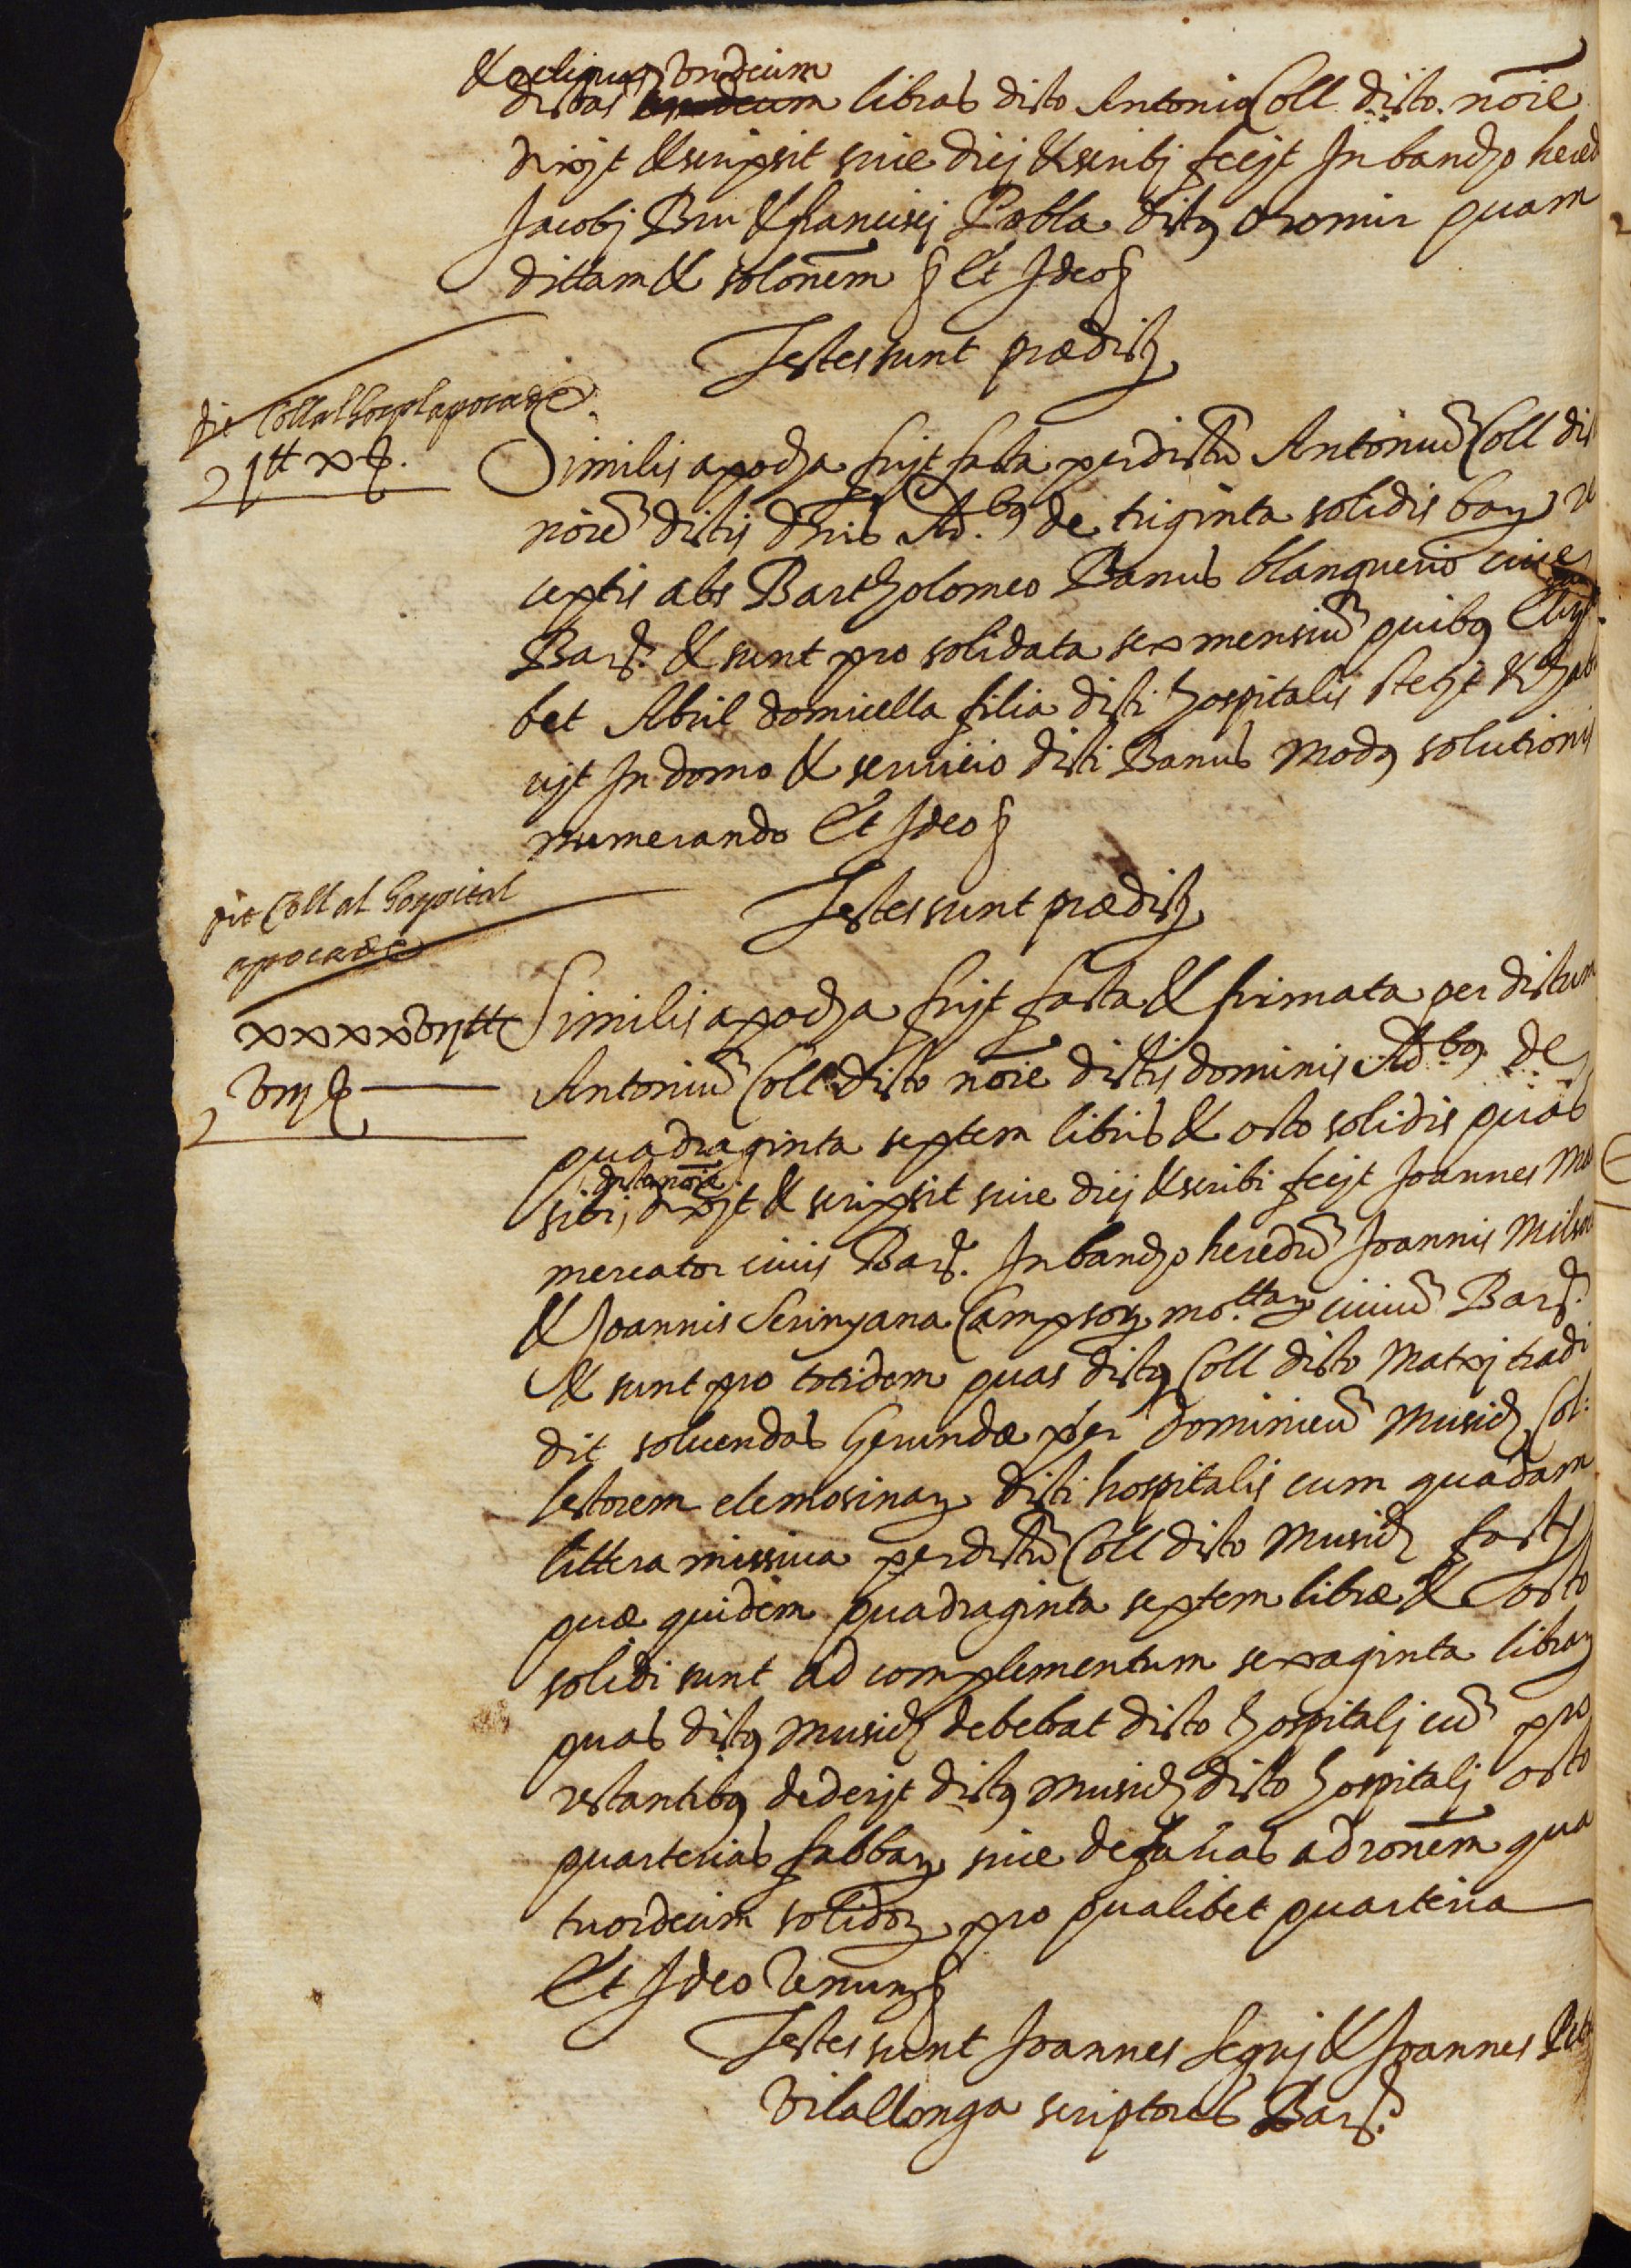 & reliquas Undecim
dictas undecim libras dicto Antonio Coll dicto noïe
dixjt & scripsit siue dicj & scribj fecjt In bancho hered
Jacobj Bru & francisci Pobla dictus oromir quam
dittam & solonem & Et Ideo &
Testes sunt prædictj
fit Coll al hospl apoca de
1 tt x ß.
Similis apocha fujt facta per dictū Antoniū Coll dic
noïe dictis dnis Ad.bus de triginta solidis barȝ re
ceptis abs Bartholomeo Banus blanquerio ciue
Barⁿ. & sunt pro solidata sex mensiū quibus Elyȝa
bet Abril domicella filia dicti hospitalis stetjt & habi
ujt In domo & seruicio dicti Banus Modus solutionis
numerando Et Ideo &
Testes sunt prædictj
fit Coll al hospital
apoca de
xxxxvij tt
viij ß
Similis apocha fujt facta & firmata per dictum
Antoniū Coll dicto noïe dictis dominis Ad.bus de
quadraginta septem libris & octo solidis quas
dicto noïe
sibi, dixjt & scripsit siue dicj & scribi fecjt Joannes Ma
mercator ciuis Barⁿ. In bancho heredū Joannis Milsoc
& Joannis Serinyana Campsorȝ mo.ttarȝ ciuiū Barⁿ.
& sunt pro totidem quas dictus Coll dicto Matxj tradi
dit soluendas Gerundæ per Dominicū Musich Col:
lectorem elemosinarȝ dicti hospitalis cum quadam
littera missiua per dictū Coll dicto Musich facta
quæ quidem quadraginta septem libræ & octo
solidi sunt ad complementum sexaginta librarȝ
quas dictus Musich debebat dicto hospitalj cū pro
restantibus dederjt dictus Musich dicto hospitalj octo
quarterias fabbarȝ siue de fauas ad ronem qua
tuordecim solidorȝ pro qualibet quarteria
Et Ideo Renunȝ &
Testes sunt Joannes Seguj & Joannes
Vilallonga scriptores Barⁿ.